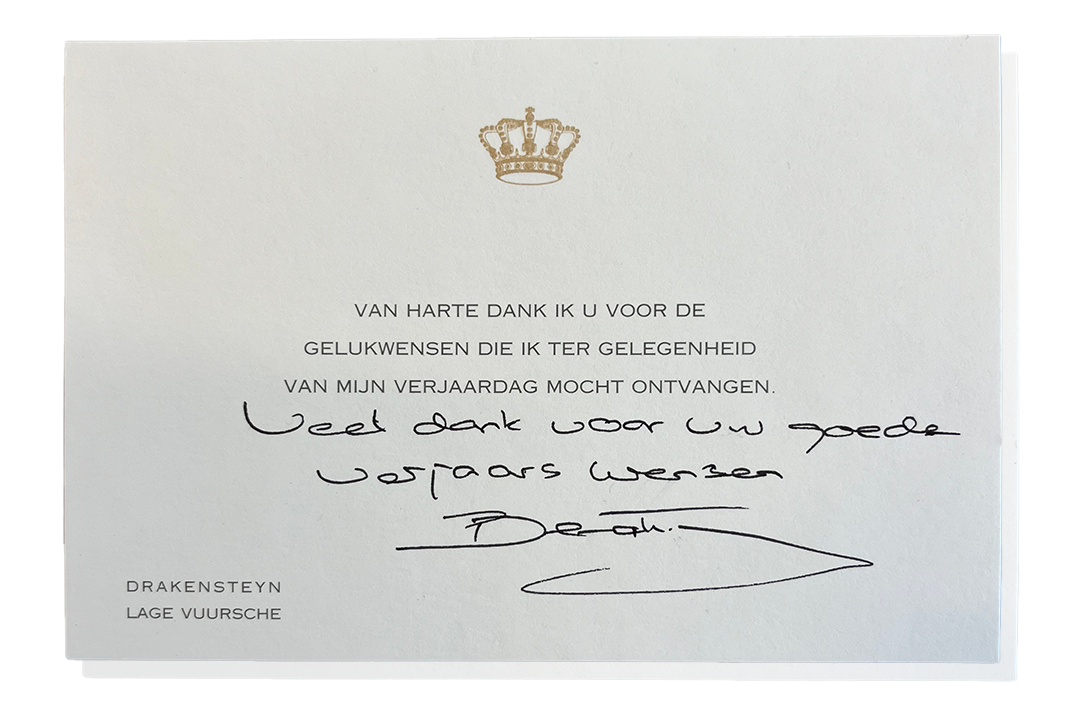 VAN HARTE DANK IK U VOOR DE
GELUKWENSEN DIE IK TER GELEGENHEID
VAN MIJN VERJAARDAG MOCHT ONTVANGEN.
Veel dank voor uw goede
verjaars wensen
Beatrix
DRAKENSTEYN
LAGE VUURSCHE